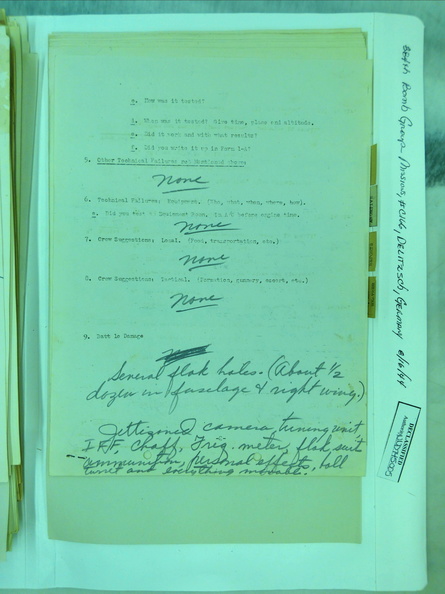 a. How was it tested?
b. When was it tested? Give time, place and altitude.
e. Did it work and with what results?
f. Did you write it up in Form 1-A?
5. Other Technical Failures not Mentioned Above:
None
6. Technical Failures: Equipment. (The, what, when, where, how).
a. Did you test in Equipment Room, in A/C before engine time.
None
7. Crew Suggestions: Local. (Food, transportation, etc.)
None
8. Crew Suggestions: Tactical. (Formation, gunnery, escort, etc.)
None
9. Battle Damage
Several flak holes. (About 1/2
dozen in fuselage & right wing.)
Jettisoned camera, tuning unit
I.F.F., chaff, Freq. meter, flak suit
ammunition, personal effects, ball
turret and everything movable.
384th Bomb Group Missions, #C166, DELITZSCH, GERMANY 8/16/44
DECLASSIFIED
Authority